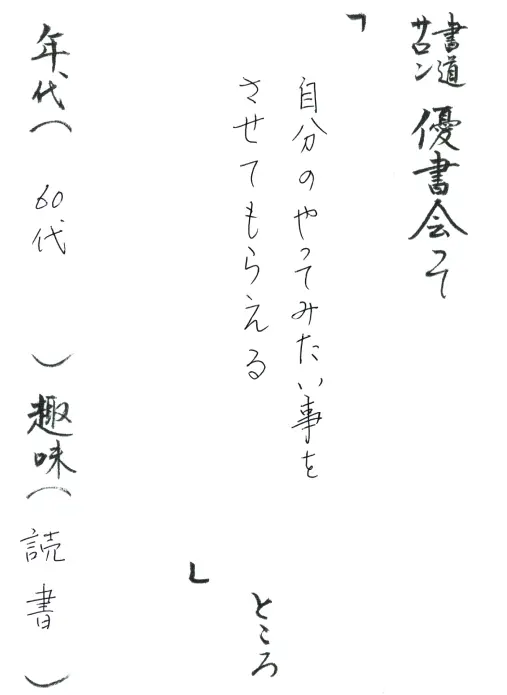 書道サロン 優書会って
「自分のやってみたい事を
させてもらえる」
ところ
年代（ 60代 ）趣味（ 読書 ）